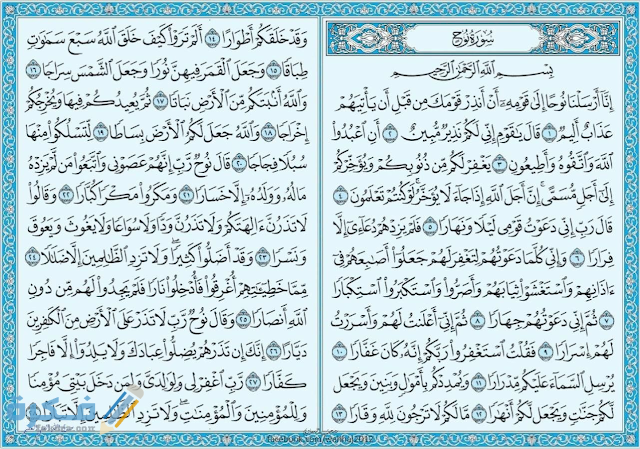 سُورَةُ نُوحٍ
بِسْمِ اللَّهِ الرَّحْمَٰنِ الرَّحِيمِ
إِنَّا أَرْسَلْنَا نُوحًا إِلَىٰ قَوْمِهِ أَنْ أَنذِرْ قَوْمَكَ مِن قَبْلِ أَن يَأْتِيَهُمْ
عَذَابٌ أَلِيمٌ ١ قَالَ يَٰقَوْمِ إِنِّي لَكُمْ نَذِيرٌ مُّبِينٌ ٢ أَنِ اعْبُدُوا
اللَّهَ وَاتَّقُوهُ وَأَطِيعُونِ ٣ يَغْفِرْ لَكُم مِّن ذُنُوبِكُمْ وَيُؤَخِّرْكُمْ
إِلَىٰ أَجَلٍ مُّسَمًّى إِنَّ أَجَلَ اللَّهِ إِذَا جَاءَ لَا يُؤَخَّرُ لَوْ كُنتُمْ تَعْلَمُونَ ٤
قَالَ رَبِّ إِنِّي دَعَوْتُ قَوْمِي لَيْلًا وَنَهَارًا ٥ فَلَمْ يَزِدْهُمْ دُعَاءِي إِلَّا
فِرَارًا ٦ وَإِنِّي كُلَّمَا دَعَوْتُهُمْ لِتَغْفِرَ لَهُمْ جَعَلُوا أَصَٰبِعَهُمْ فِي
ءَاذَانِهِمْ وَاسْتَغْشَوْا ثِيَابَهُمْ وَأَصَرُّوا وَاسْتَكْبَرُوا اسْتِكْبَارًا
٧ ثُمَّ إِنِّي دَعَوْتُهُمْ جِهَارًا ٨ ثُمَّ إِنِّي أَعْلَنتُ لَهُمْ وَأَسْرَرْتُ
لَهُمْ إِسْرَارًا ٩ فَقُلْتُ اسْتَغْفِرُوا رَبَّكُمْ إِنَّهُ كَانَ غَفَّارًا ١٠
يُرْسِلِ السَّمَاءَ عَلَيْكُم مِّدْرَارًا ١١ وَيُمْدِدْكُم بِأَمْوَٰلٍ وَبَنِينَ وَيَجْعَل
لَّكُمْ جَنَّٰتٍ وَيَجْعَل لَّكُمْ أَنْهَٰرًا ١٢ مَّا لَكُمْ لَا تَرْجُونَ لِلَّهِ وَقَارًا ١٣
وَقَدْ خَلَقَكُمْ أَطْوَارًا ١٤ أَلَمْ تَرَوْا كَيْفَ خَلَقَ اللَّهُ سَبْعَ سَمَٰوَٰتٍ
طِبَاقًا ١٥ وَجَعَلَ الْقَمَرَ فِيهِنَّ نُورًا وَجَعَلَ الشَّمْسَ سِرَاجًا ١٦
وَاللَّهُ أَنبَتَكُم مِّنَ الْأَرْضِ نَبَاتًا ١٧ ثُمَّ يُعِيدُكُمْ فِيهَا وَيُخْرِجُكُمْ
إِخْرَاجًا ١٨ وَاللَّهُ جَعَلَ لَكُمُ الْأَرْضَ بِسَاطًا ١٩ لِّتَسْلُكُوا مِنْهَا
سُبُلًا فِجَاجًا ٢٠ قَالَ نُوحٌ رَّبِّ إِنَّهُمْ عَصَوْنِي وَاتَّبَعُوا مَن لَّمْ يَزِدْهُ
مَالُهُ وَوَلَدُهُ إِلَّا خَسَارًا ٢١ وَمَكَرُوا مَكْرًا كُبَّارًا ٢٢ وَقَالُوا
لَا تَذَرُنَّ ءَالِهَتَكُمْ وَلَا تَذَرُنَّ وَدًّا وَلَا سُوَاعًا وَلَا يَغُوثَ وَيَعُوقَ
وَنَسْرًا ٢٣ وَقَدْ أَضَلُّوا كَثِيرًا وَلَا تَزِدِ الظَّٰلِمِينَ إِلَّا ضَلَٰلًا ٢٤
مِّمَّا خَطِيـَٰٔتِهِمْ أُغْرِقُوا فَأُدْخِلُوا نَارًا فَلَمْ يَجِدُوا لَهُم مِّن دُونِ
اللَّهِ أَنصَارًا ٢٥ وَقَالَ نُوحٌ رَّبِّ لَا تَذَرْ عَلَى الْأَرْضِ مِنَ الْكَٰفِرِينَ
دَيَّارًا ٢٦ إِنَّكَ إِن تَذَرْهُمْ يُضِلُّوا عِبَادَكَ وَلَا يَلِدُوا إِلَّا فَاجِرًا
كَفَّارًا ٢٧ رَّبِّ اغْفِرْ لِي وَلِوَٰلِدَيَّ وَلِمَن دَخَلَ بَيْتِيَ مُؤْمِنًا
وَلِلْمُؤْمِنِينَ وَالْمُؤْمِنَٰتِ وَلَا تَزِدِ الظَّٰلِمِينَ إِلَّا تَبَارًا